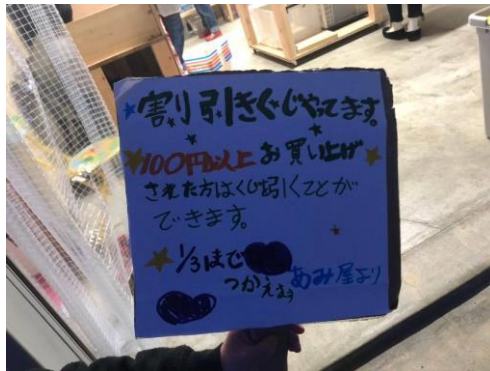 割り引きくじやってます。
100円以上お買い上げ
された方はくじ引くことが
できます。
1/3まで
つかえます
あみ屋より